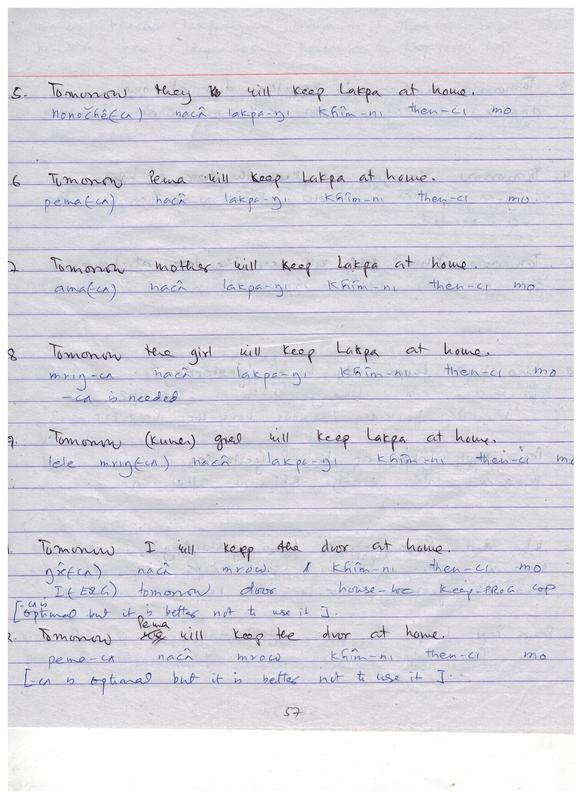 5. Tomorrow they will keep Lakpa at home.
nonočhê(-cʌ) nacâ lakpa-ŋi khîm-ni then-ci mo
6 Tomorrow Pema will keep Lakpa at home.
pema(-cʌ) nacâ lakpa-ŋi khîm-ni then-ci mo
7 Tomorrow mother will keep Lakpa at home.
ama(-cʌ) nacâ lakpa-ŋi khîm-ni then-ci mo
8 Tomorrow the girl will keep Lakpa at home.
mriŋ-cʌ nacâ lakpa-ŋi khîm-ni then-ci mo
-cʌ is needed
9. Tomorrow will keep Lakpa at home.
lele mriŋ(-cʌ) nacâ lakpa-ŋi khîm-ni then-ci mo
1. Tomorrow I will keep the door at home.
(-cʌ) nacâ mrow khîm-ni then-ci mo
I(ERG) tomorrow door house-loc keep-PROG cop
[-cʌ is optional but it is better not to use it].
2. Tomorrow Pema will keep the door at home.
pema-cʌ nacâ mrow khîm-ni then-ci mo
[-cʌ is optional but it is better not to use it]
57